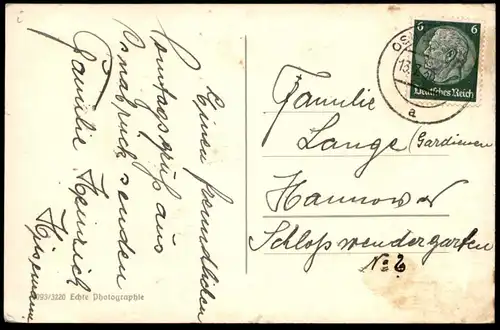 Einen freundlichen
Sonntagsgruß aus
Osnabrück senden
Familie Heinrich
6 6
Deutsches Reich
OS
13.
a
Familie
Lange (Gardinen
Hannover
Schloßwendergarten
No 2
093/3220 Echte Photographie